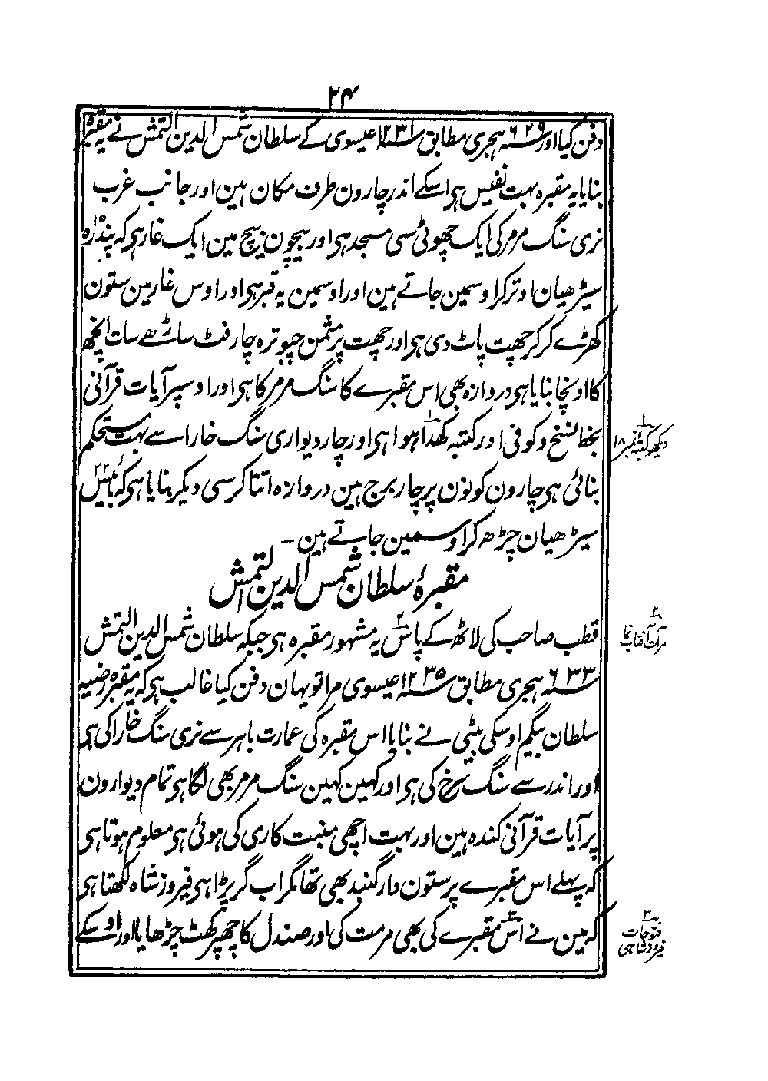 ۲۴
دفن کیا اور ۶۲۹ ہجری مطابق ۱۲۳۱ عیسوی کے سلطان شمس الدین التمش نے یہ مقبرہ
بنایا یہ مقبرہ بہت نفیس ہی اسکے اندر چارون طرف مکان ہین اور جانب غرب
نری سنگ مرمر کی ایک چھوٹی سی مسجد ہی اور بیچون بیچ مین ایک غار ہی کہ پندرہ
سیڑھیان اوتر کر اوسمین جاتے ہین اور اوسمین یہ قبر ہی اور اوس غار مین ستون
کھڑے کر کر چھت پاٹ دی ہی اور چھت پر مثمن چبوترہ چار فٹ ساڑھے سات انچھ
کا اونچا بنایا ہی دروازہ بھی اس مقبرے کا سنگ مرمر کا ہی اور اوسپر آیات قرآنی
بخط نسخ و کوفی اور کتبہ کھدا ہوا ہی اور چار دیواری سنگ خارا سے بہت مستحکم
دیکھو کتبہ نمبر ۱۸
بنائی ہی چارون کونون پر چار برج ہین دروازہ اتنا کرسی دیکر بنایا ہی کہ بائیس ۲۲
سیڑھیان چڑھ کر اوسمین جاتے ہین ۔
مقبرۂ سلطان شمس الدین التمش
قطب صاحب کی لاٹھ کے پاس یہ مشہور مقبرہ ہی جبکہ سلطان شمس الدین التمش
مرآت آفتاب نما
۶۳۳ ہجری مطابق ۱۲۳۵ عیسوی مرا تو یہان دفن کیا غالب ہی کہ یہ مقبرہ رضیہ
سلطان بیگم اوسکی بیٹی نے بنایا اس مقبرہ کی عمارت باہر سے نری سنگ خارا کی ہی
اور اندر سے سنگ سرخ کی ہی اور کہین کہین سنگ مرمر بھی لگا ہی تمام دیوارون
پر آیات قرآنی کندہ ہین اور بہت اچھی منبت کاری کی ہوئی ہی معلوم ہوتا ہی
کہ پہلے اس مقبرے پر ستون دار گنبد بھی تھا مگر اب گر پڑا ہی فیروز شاہ لکھتا ہی
کہ مین نے اس مقبرے کی بھی مرمت کی اور صندل کا چھپرکھٹ چڑھایا اور اوسکے
فتوحات
فیروز شاہی